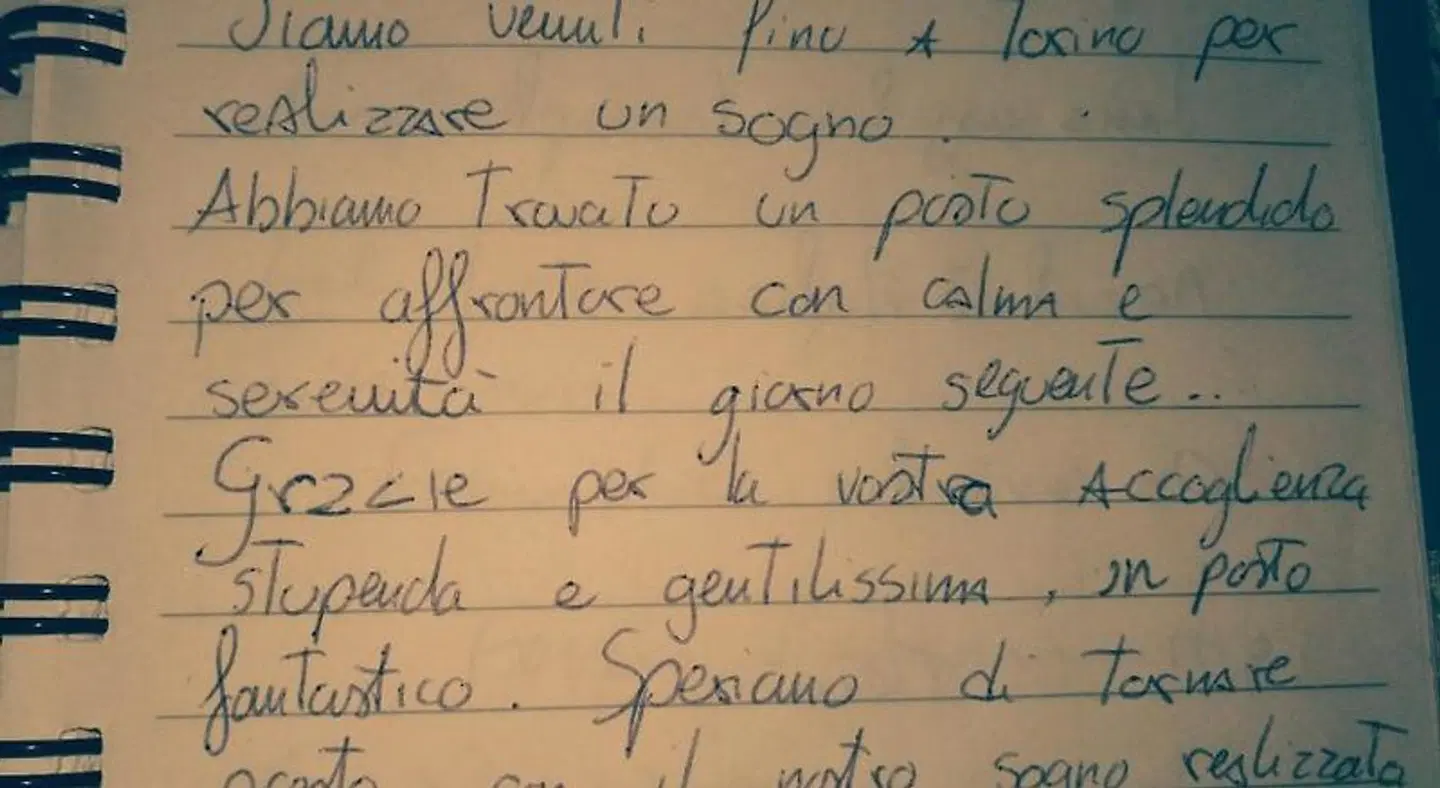 Siamo venuti fino A Torino per
reAlizzAre un sogno.
Abbiamo Trovato un posto splendido
per affrontare con cAlmA e
serenità il giorno seguente..
Grazie per la vostra Accoglienza
stupenda e gentilissimA, in posto
fantastico. Speriamo di Tornare
presto con il nostro sogno realizzato